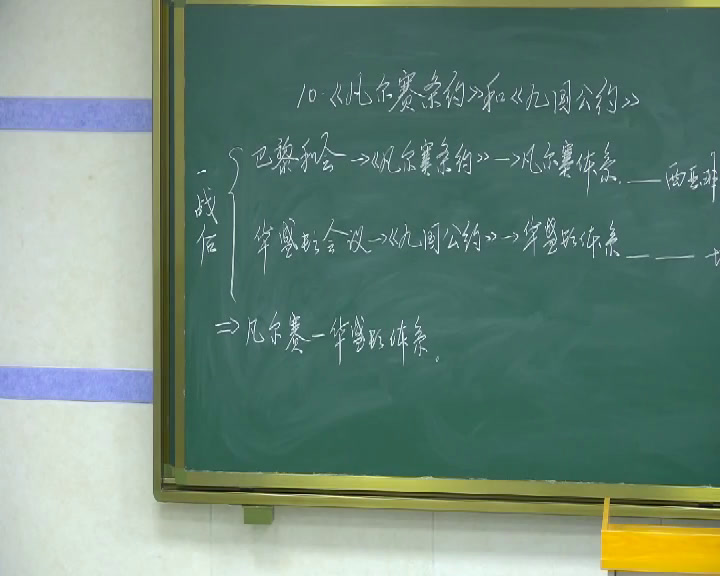 10.《凡尔赛条约》和《九国公约》
一战后
巴黎和会→《凡尔赛条约》→凡尔赛体系.——西亚非
华盛顿会议→《九国公约》→华盛顿体系————
⇒凡尔赛—华盛顿体系。